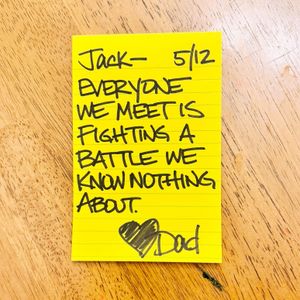 Jack— 5/12
EVERYONE
WE MEET IS
FIGHTING A
BATTLE WE
KNOW NOTHING
ABOUT.
Dad